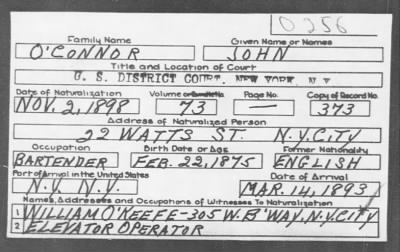 0256
Family Name Given Name or Names
O'CONNOR JOHN
Title and Location of Court
U. S. DISTRICT COURT, NEW YORK, N Y
Date of Naturalization Volume Page No. Copy of Record No.
NOV. 2, 1898 73 — 373
Address of Naturalized Person
22 WATTS ST. N.Y. CITY
Occupation Birth Date or Age Former Nationality
BARTENDER FEB. 22, 1875 ENGLISH
Port of Arrival in the United States Date of Arrival
N.Y. N.Y. MAR. 14, 1893
Names, Addresses and Occupations of Witnesses To Naturalization
1 WILLIAM O'KEEFE-305 W. B'WAY, N.Y. CITY
2 ELEVATOR OPERATOR